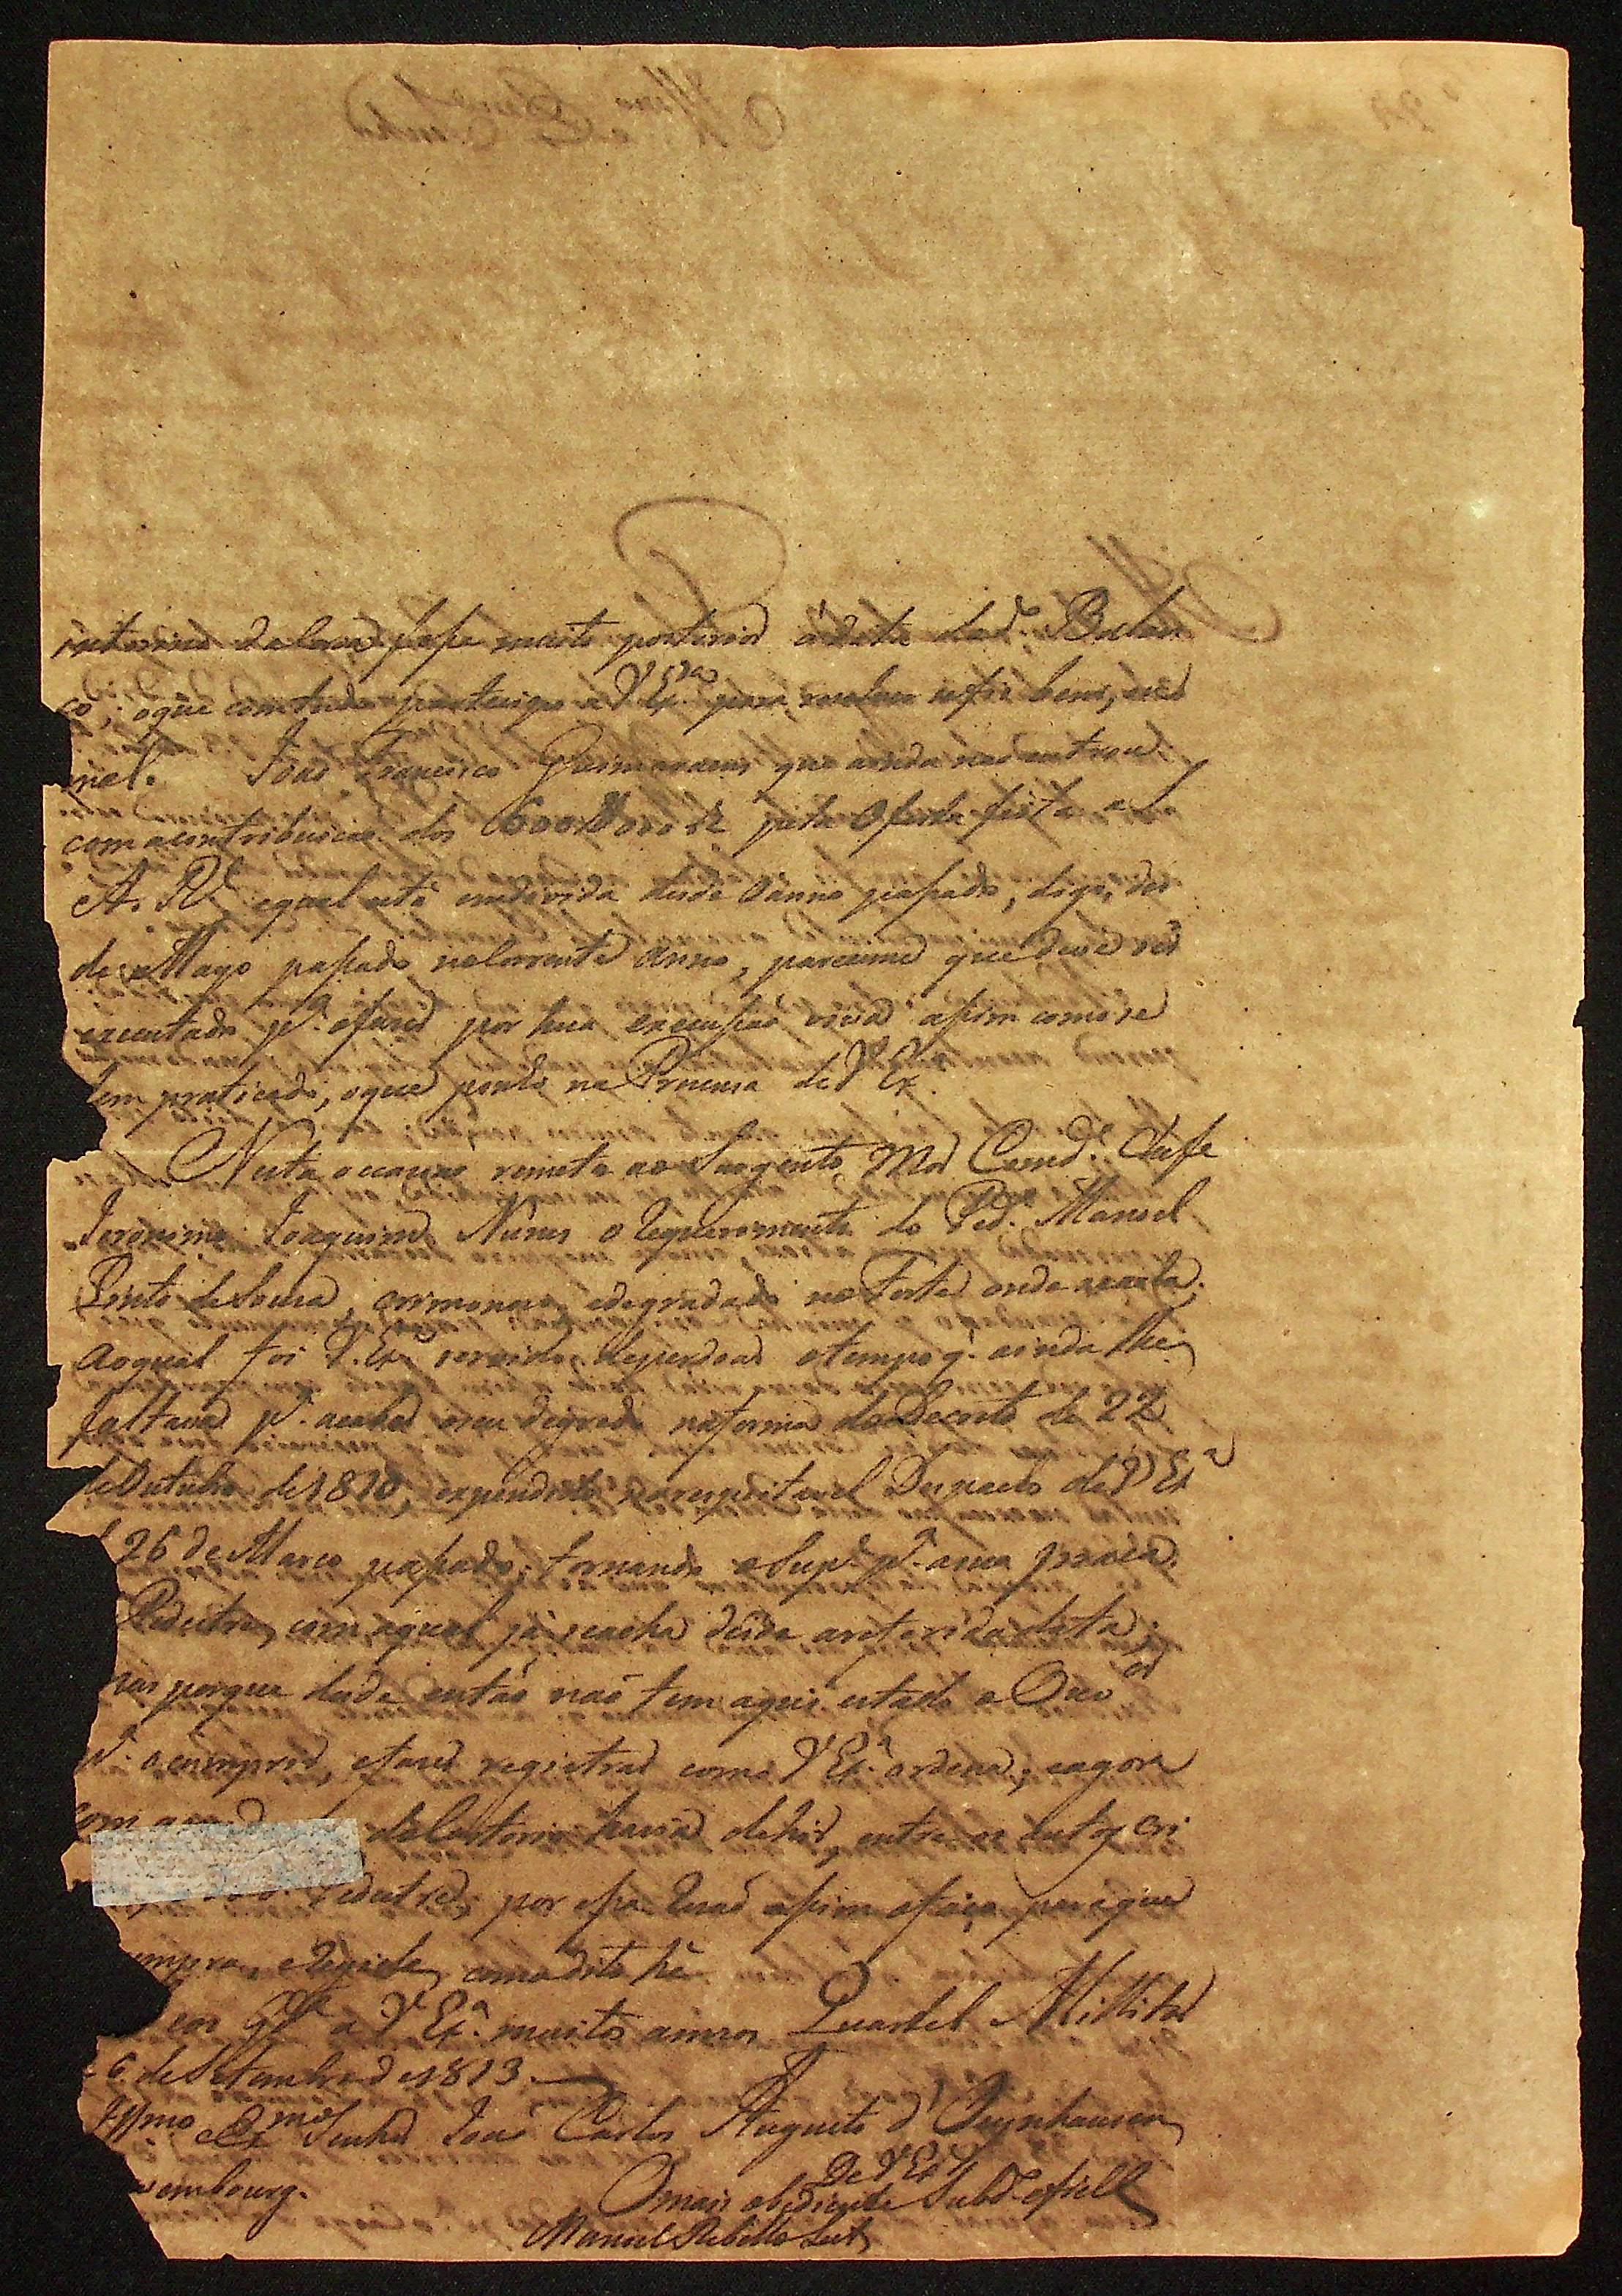 interino da lavra fosse muito posterior á data dad.ª Balan
ço; oque comtudo partecipo a V Ex.ª para resolver
João Francisco Guimaraens que ainda não entrou
com acontribuicaõ dos 600$000 rs pela Oferta feita a
A. R.l equal está emdivida desde o anno passado, digo, des
de Mayo passado nocorrente anno, pareceme que deve ser
executado p.ª ofazer por hua execussaõ viva assim como se
tem praticado, oque ponho na Prezensa de V Ex.ª
Nesta occaziaõ remeto ao Sargento Mor Comd.e Chefe
Jeronimo Joaquim Nunes o Requerimento do Ped.e Manoel
Pinto de Souza, criminozo, edegradado no Forte, onde seacha.
Aoqual foi V. Ex.ª servido deperdoar otempo q. ainda lhe
faltava p.ª acabar oseu degredo naforma do Decreto de 22
deOutubro de1810, expendido norespeitavel Despacho de V Ex.ª
26 de Março passado, tornando o Sup.e p.ª asua praça
Pedestre, com aqual já seacha desde areferida data;
mas porque desde entaõ naõ tem aqui estado o Ouv.or
p.ª ocumprir, efazer registrar como V Ex.ª ordena; eagora
com deCartorio havia dehir, entre os autos cri
Pedestre, por essa Rezaõ assim ofaço paraque
umpra, eRegiste, como dito hé
eos G.de a V Ex.ª muitos annos Quartel Millitar
6 de Setembro de 1813
Ill.mo e Ex.mo Senhor Joaõ Carlos Augusto d' Oeynhausen
vembourg.
De V Ex.ª
Omais obediente Subd.º efiel
Manoel Rebello Leite